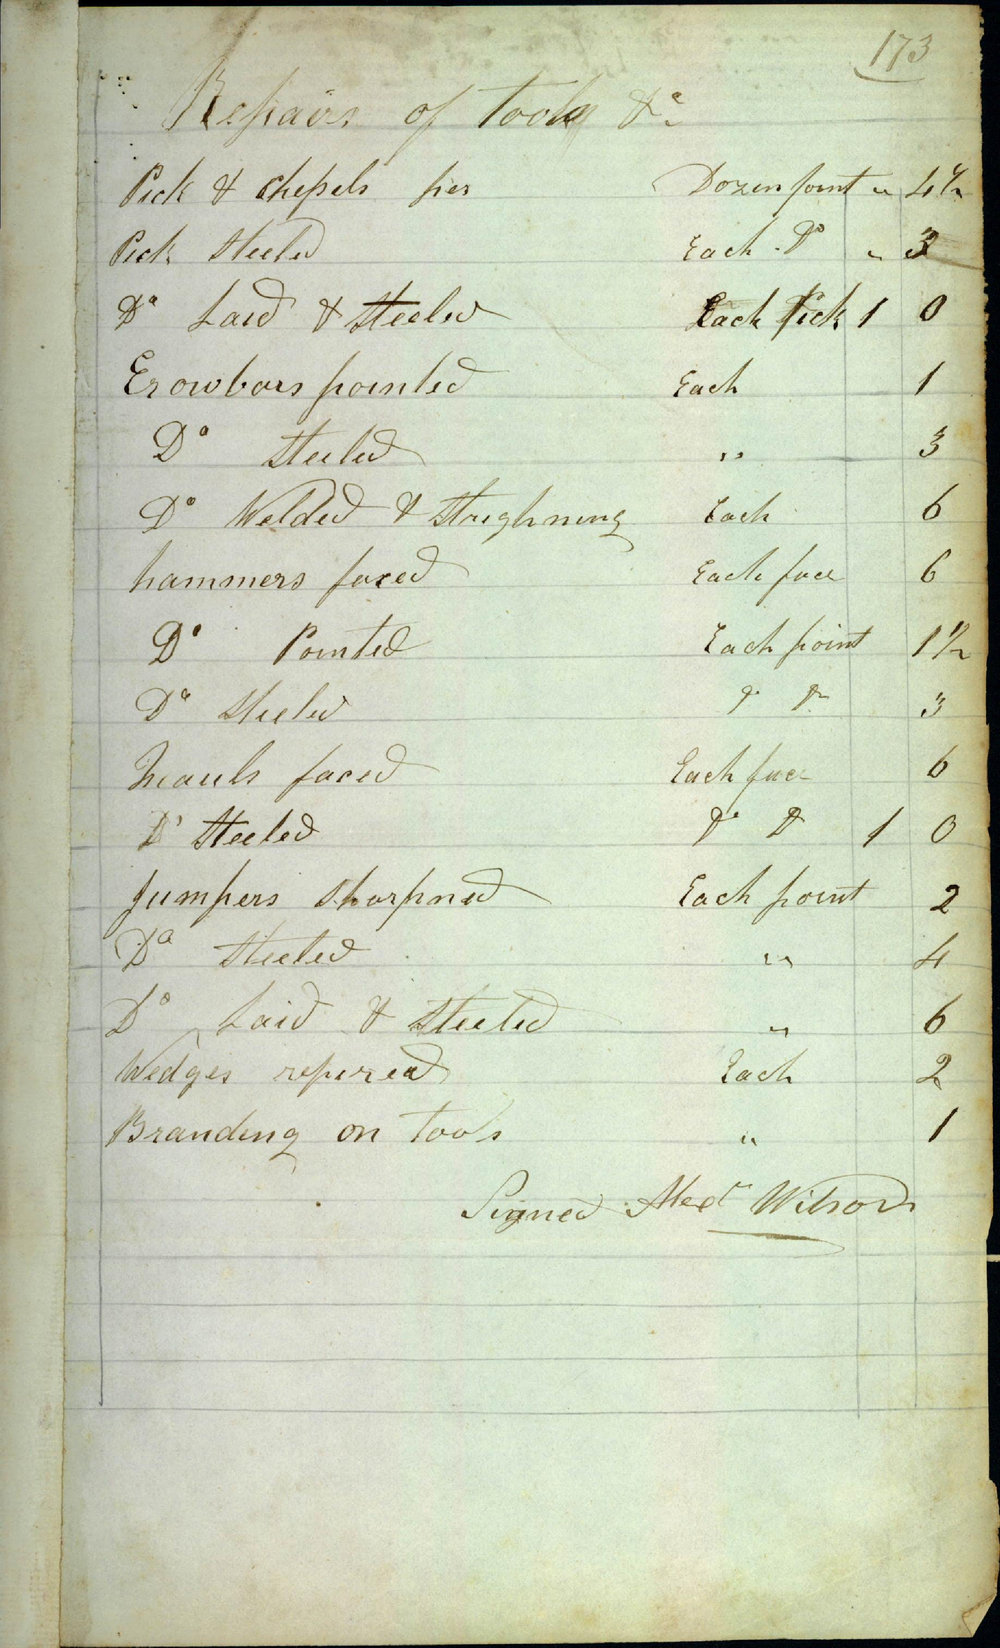 173
Repairs of tools &c
Pick & Chesels per Dozen point " 4½
Pick Steeled Each Do " 3
Do Laid & Steeled Each Pick 1 0
Crowbars pointed Each 1
Do Steeled " 3
Do Welded & Streghning Each 6
hammers faced Each face 6
Do Pointed Each point 1½
Do Steeled Do Do 3
Mauls faced Each face 6
Do Steeled Do Do 1 0
Jumpers Sharpned Each point 2
Do Steeled " 4
Do Laid & Steeled " 6
Wedges repired Each 2
Branding on tools " 1
Signed Alexr Wilson